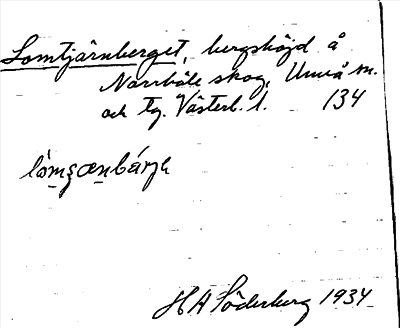 Lomtjärnberget, bergshöjd å
Norrböle skog, Umeå sn.
och tg. Västerb. l. 134
HA Söderberg 1934